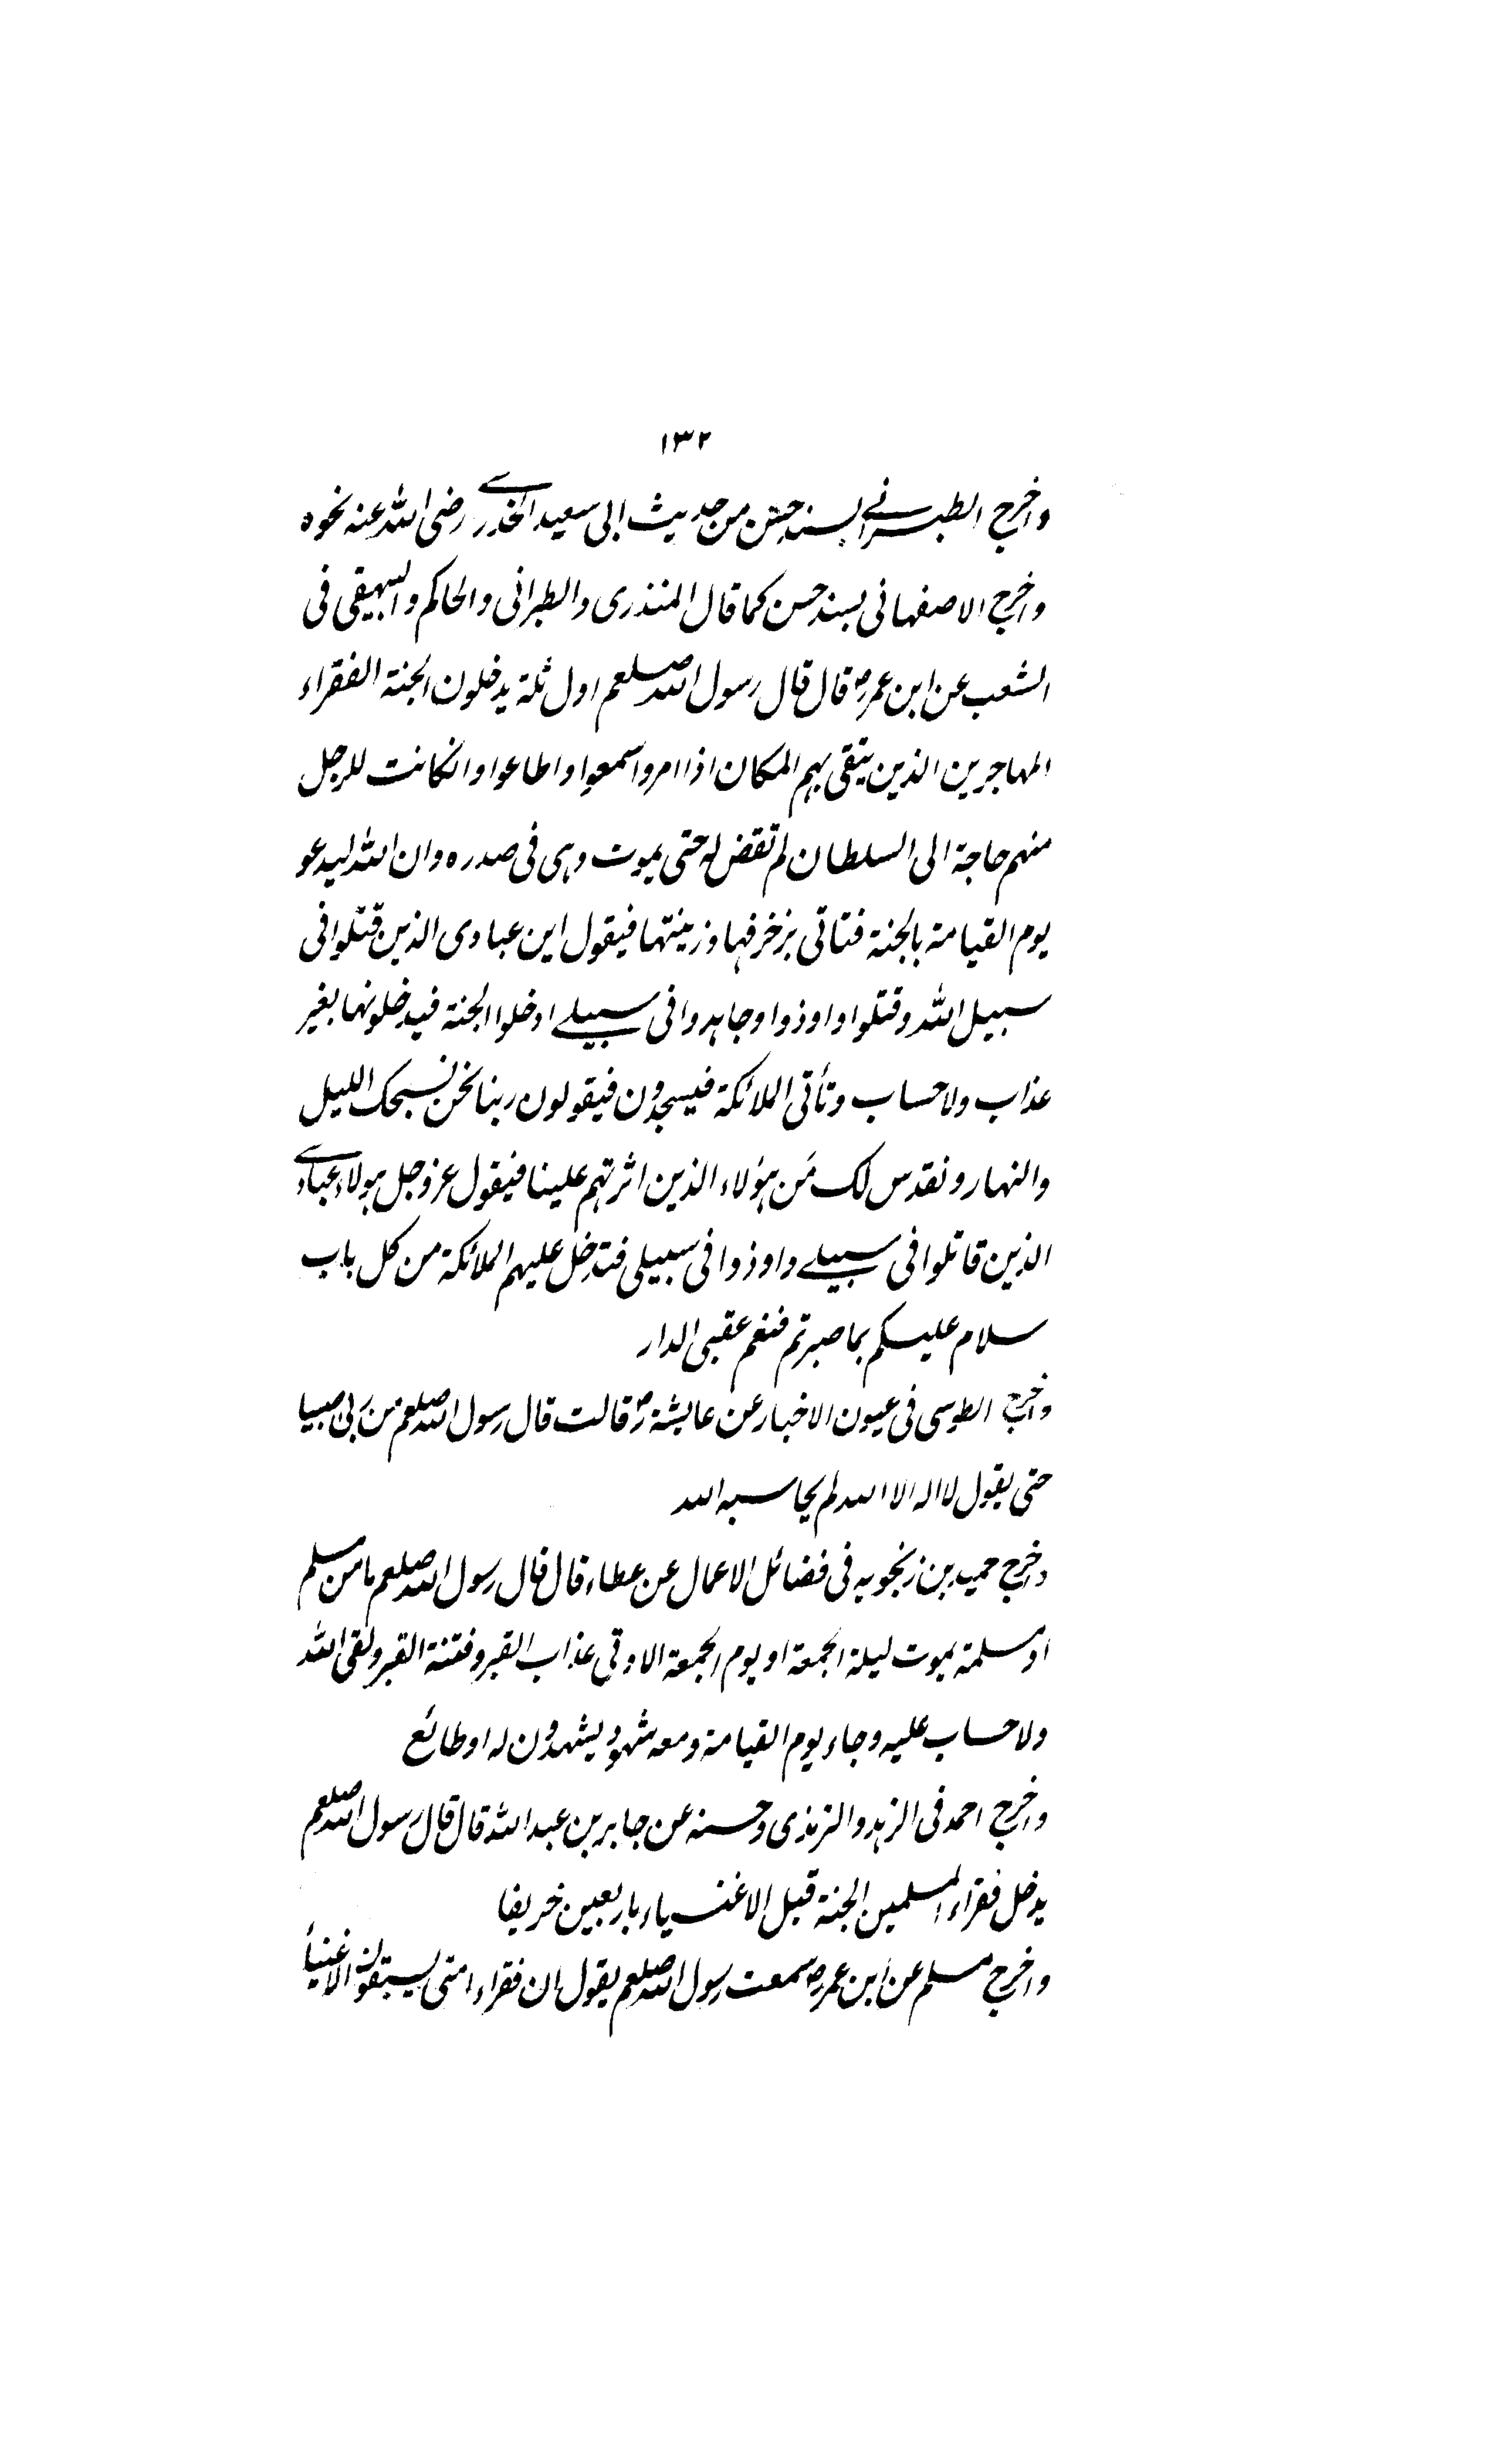 ١٣٢
واخرج الطبرانی بسند حسن من حدیث ابی سعید الخدری رضی الله عنه نحوه
واخرج الاصفهانی بسند حسن کما قال المنذری والطبرانی والحاکم والبیهقی فی
الشعب عن ابن عمرؓ قال قال رسول الله صلعم اول ثلة یدخلون الجنة الفقراء
المهاجرین الذین یتقی بهم المکان اذا امروا سمعوا واطاعوا وانکانت للرجل
منهم حاجة الی السلطان لم تقض له حتی یموت وهی فی صدره وان الله لیدعو
یوم القیامة بالجنة فتاتی بزخرفها وزینتها فیقول این عبادی الذین قتلوا فی
سبیل الله وقتلوا واوذوا وجاهدوا فی سبیلی ادخلوا الجنة فیدخلونها بغیر
عذاب ولا حساب وتأتی الملائکة فیسجدون فیقولون ربنا نحن نسبحک اللیل
والنهار ونقدس لک مَن هؤلاء الذین اثرتهم علینا فیقول عز وجل هولاء عبادی
الذین قاتلوا فی سبیلی واوذوا فی سبیلی فتدخل علیهم الملائکة من کل باب
سلام علیکم بما صبرتم فنعم عقبی الدار
واخرج الطوسی فی عیون الاخبار عن عایشةؓ قالت قال رسول الله صلعم من ربی صبیا
حتی یقول لا اله الا الله لم یحاسبه الله
واخرج حمید بن زنجویه فی فضائل الاعمال عن عطاء قال قال رسول الله صلعم ما من مسلم
او مسلمة یموت لیلة الجمعة او یوم الجمعة الا وقی عذاب القبر وفتنة القبر ولقی الله
ولا حساب علیه وجاء یوم القیامة ومعه شهود یشهدون له او طائع
واخرج احمد فی الزهد والترمذی وحسنه عن جابر بن عبد الله قال قال رسول الله صلعم
یدخل فقراء المسلمین الجنة قبل الاغنیاء باربعین خریفا
واخرج مسلم عن ابن عمرؓ سمعت رسول الله صلعم یقول ان فقراء امتی یسبقون الاغنیأ